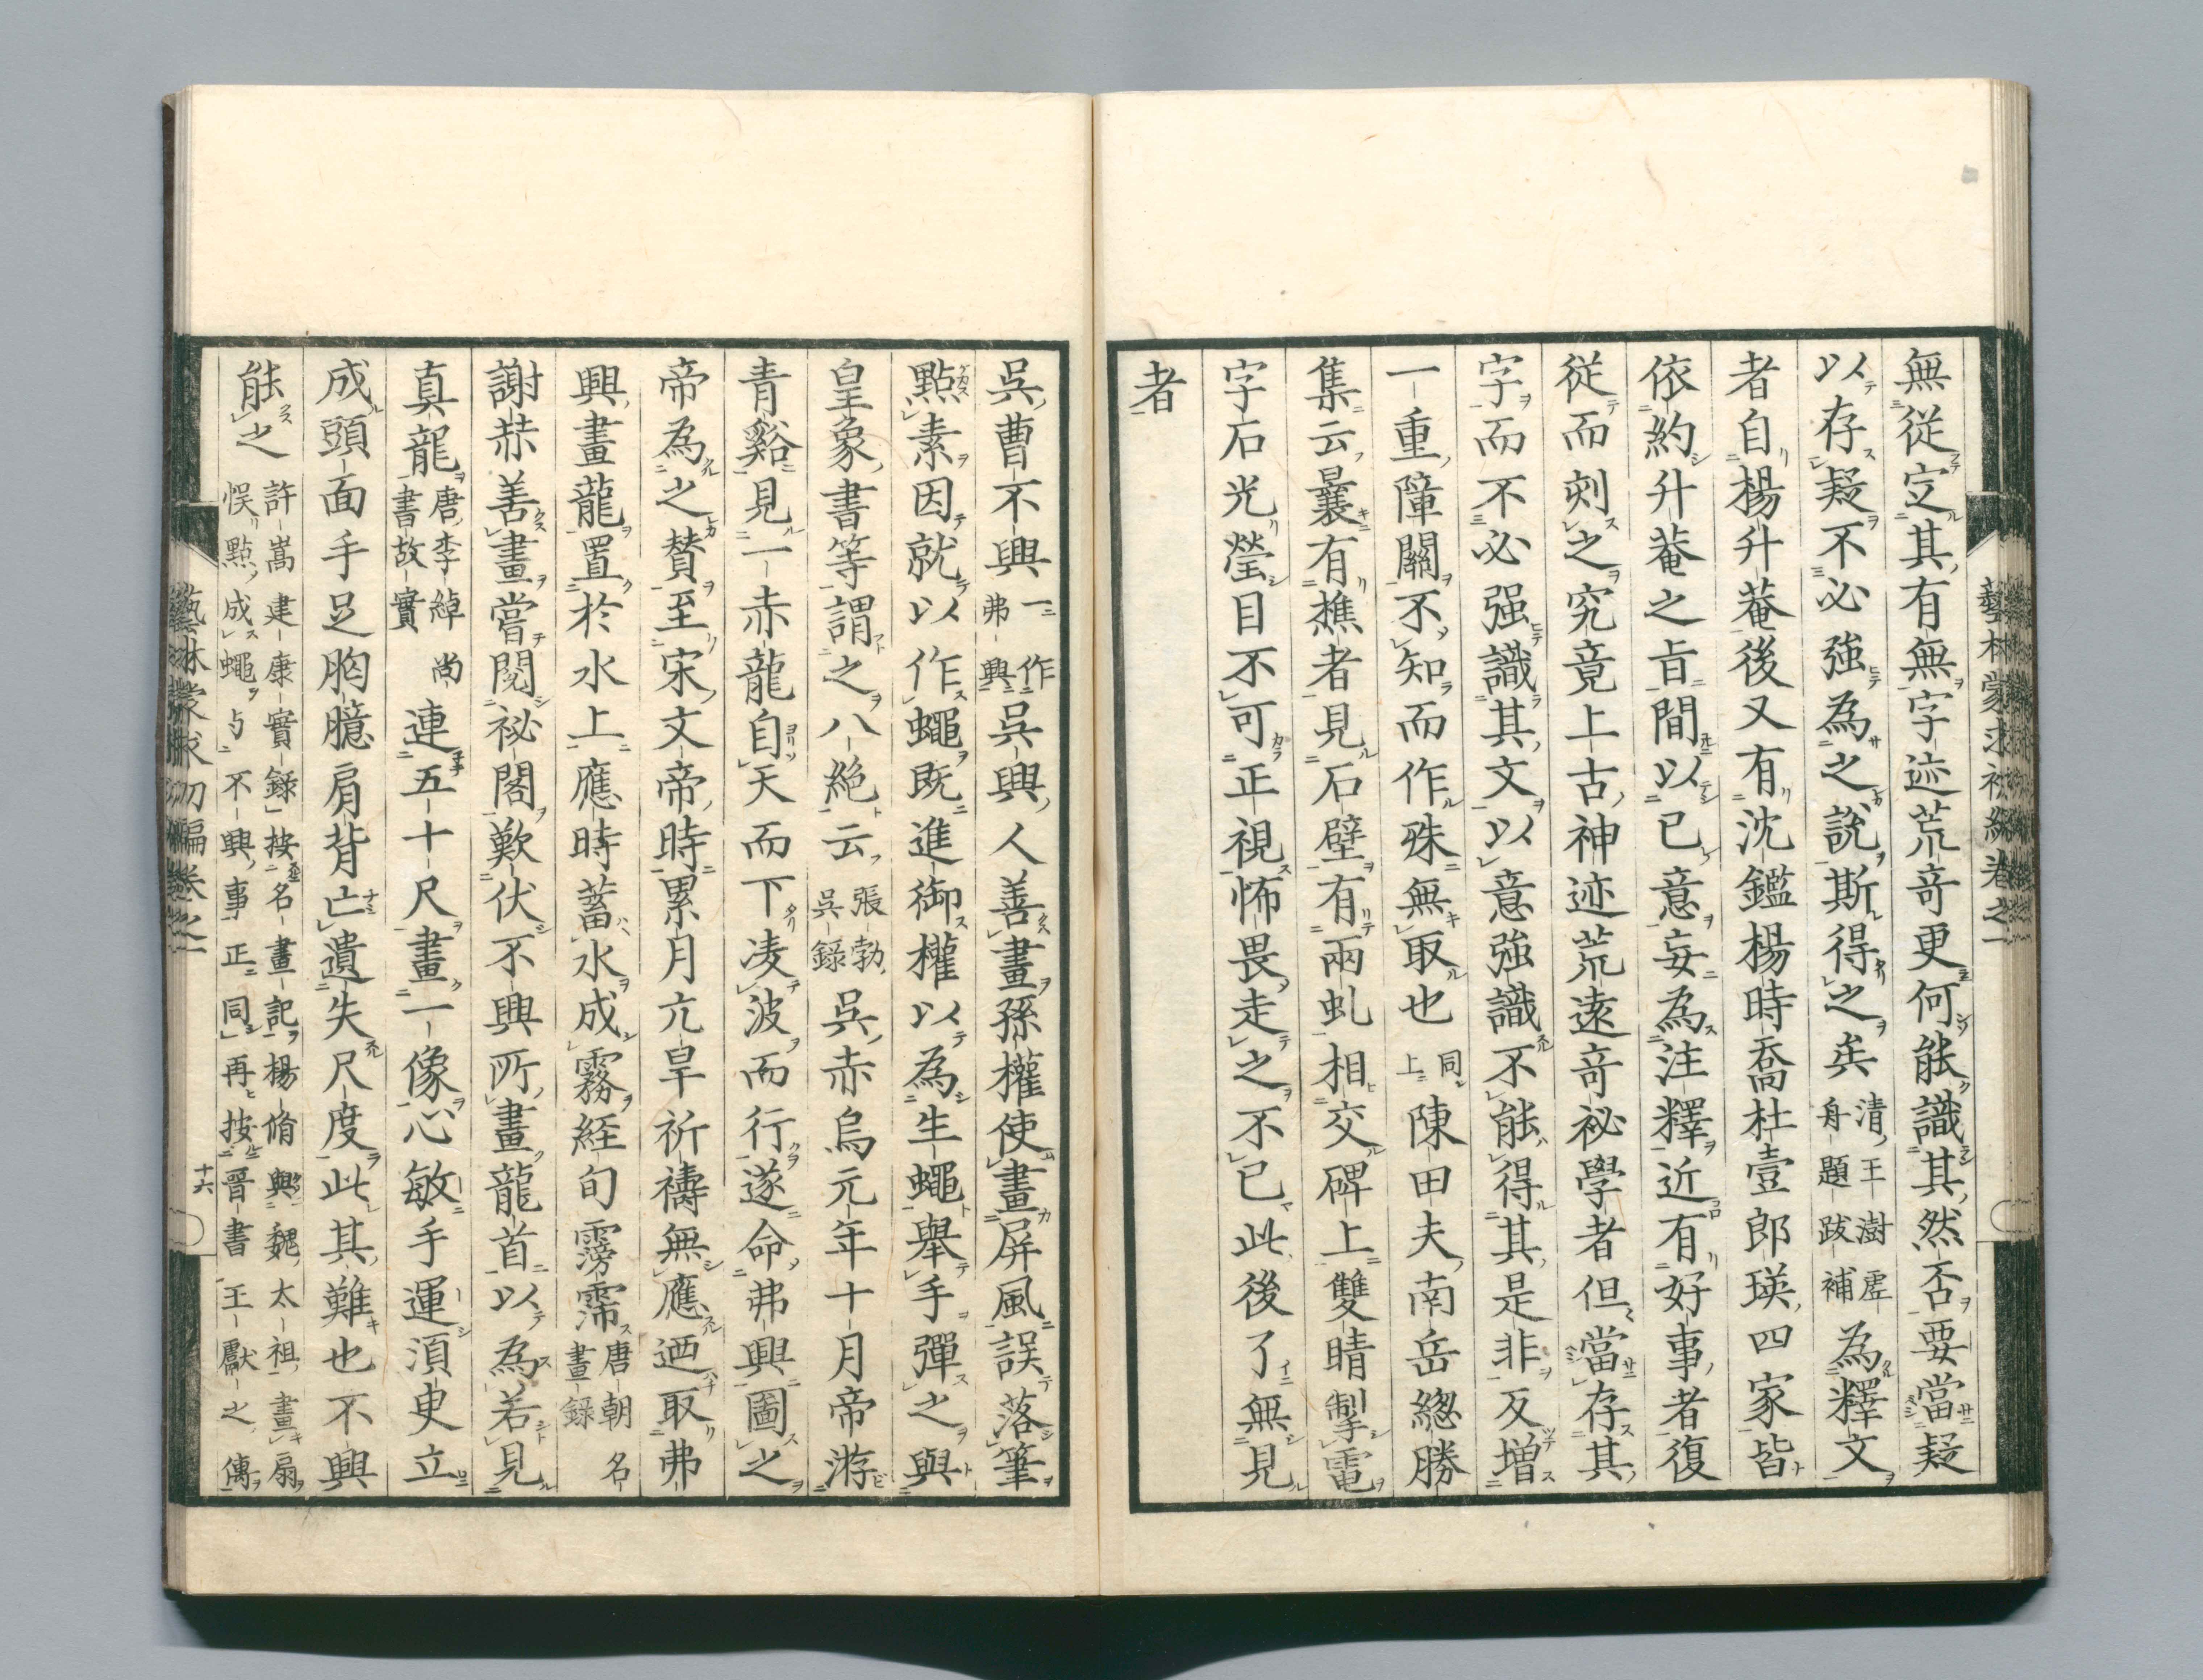 無從定其有無字迹荒奇更何能識其然否要當疑
以存疑不必強為之說斯得之矣清王澍虚舟題跋補為釋文
者自楊升菴後又有沈鑑楊時喬杜壹郎瑛四家皆
依約升菴之旨間以已意妄為注釋近有好事者復
從而刻之究竟上古神迹荒遠奇祕學者但當存其
字而不必强識其文以意強識不能得其是非反增
一重障關不知而作殊無取也同上陳田夫南岳總勝
集云曩有樵者見石壁有兩虬相交碑上雙睛掣電
字石光瑩目不可正視怖畏走之不已此後了無見
者
藝林蒙求初編卷之一
吳曹不興一作弗興吳興人善畫孫權使畫屏風誤落筆
點素因就以作蠅既進御權以為生蠅舉手彈之與
皇象書等謂之八絶云張勃吳錄吳赤烏元年十月帝游
青谿見一赤龍自天而下凌波而行遂命弗興圖之
帝為之賛至宋文帝時累月亢旱祈禱無應迺取弗
興畫龍置於水上應時蓄水成霧経旬霶霈唐朝名畫錄
謝赫善畫嘗閱祕閣歎伏不興所畫龍首以為若見
真龍唐李綽尚書故實連五十尺畫一像心敏手運須臾立
成頭面手足胸臆肩背亡遺失尺度此其難也不興
能之許嵩建康實錄按名畫記楊脩與魏太祖畫扇悞點成蠅与不興事正同再按晋書王獻之傳
藝林蒙求初編卷之一
十六